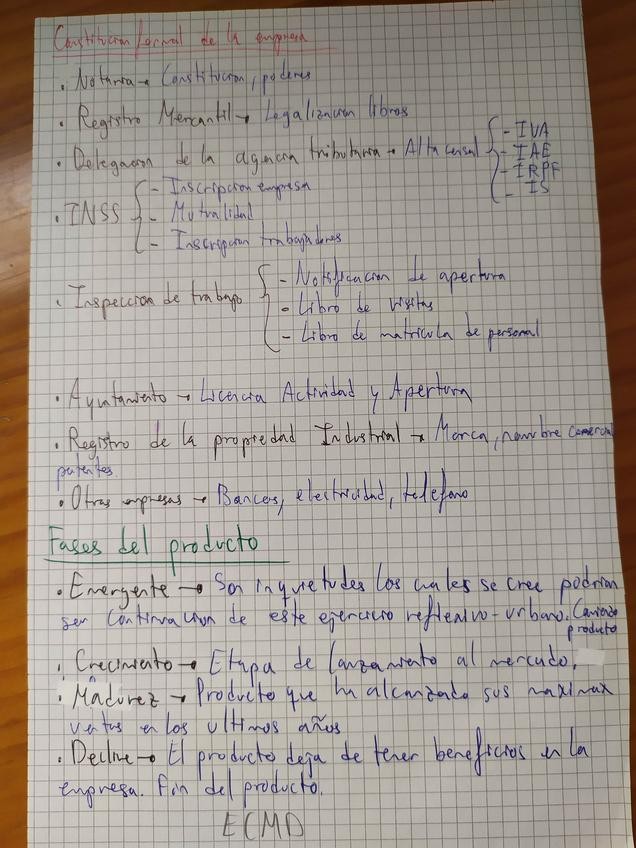 Constitucion formal de la empresa
• Notaria → Constitucion, poderes
• Registro Mercantil → Legalizacion libros
• Delegacion de la agencia tributaria → Alta censal { - IVA
- IAE
- IRPF
- IS
• INSS { - Inscripcion empresa
- Mutualidad
- Inscripcion trabajadores
• Inspeccion de trabajo { - Notificacion de apertura
- Libro de visitas
- Libro de matricula de personal
• Ayuntamiento → Licencia Actividad y Apertura
• Registro de la propiedad Industrial → Marca, nombre comercial
patentes.
• Otras empresas → Bancos, electricidad, telefono
Fases del producto
• Emergente → Son inquietudes los cuales se cree podrian
ser continuacion de este ejercicio reflexivo-urbano.
producto
• Crecimiento → Etapa de lanzamiento al mercado.
• Madurez → Producto que ha alcanzado sus maximax
ventas en los ultimos años
• Declive → El producto deja de tener beneficios en la
empresa. Fin del producto.
ECMD